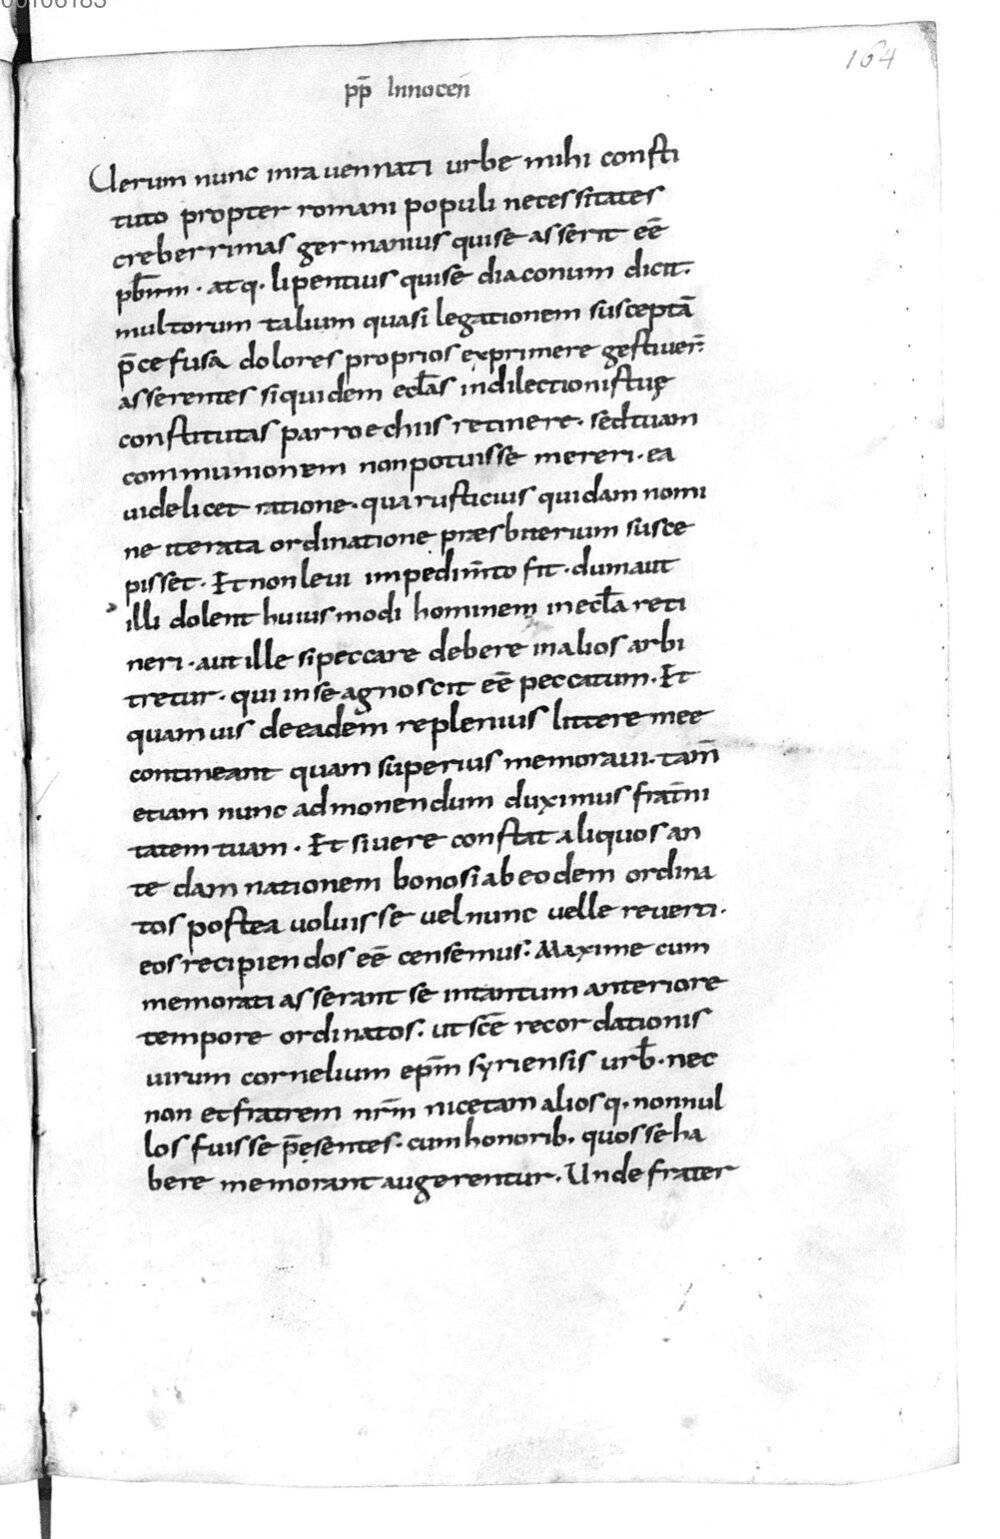 00106183
164
pp̄ Innocen̄
Uerum nunc inra uennati urbe mihi consti
tuto propter romani populi necessitates
creberrimas germanius quise asserit eē
pb̄rm · atq · lipentius quise diaconum dicit·
multorum talium quasi legationem susceptā
p̄ce fusa dolores proprios exprimere gestiuer̄·
asserentes siquidem ecl̄as indilectionistuę
constitutas parroechiis retinere · sedtuam
communionem nonpotuisse mereri · ea
uidelicet ratione · qua rusticius quidam nomi
ne iterata ordinatione præsbiterium susce
pisset · Et non leui impedim̄to fit · dumaut
illi dolent huiusmodi hominem inecl̄a reti
neri · aut ille sipeccare debere inalios arbi
tretur · qui inse agnoscit eē peccatum · Et
quamuis deeadem replenius littere mee
contineant quam superius memoraui · tam̄
etiam nunc admonendum duximus frat̄ni
tatem tuam · Et siuere constat aliquos an
te damnationem bonosi abeodem ordina
tos postea uoluisse uelnunc uelle reuerti ·
eos recipiendos eē censemus : Maxime cum
memorati asserant se intantum anteriore
tempore ordinatos : ut scē recordationis
uirum cornelium epm̄ syriensis urb̄ · nec
non etfratrem nr̄m nicetam aliosq · nonnul
los fuisse p̄ęsentes · cumhonorib · quos seha
bere memorant augerentur · Unde frater